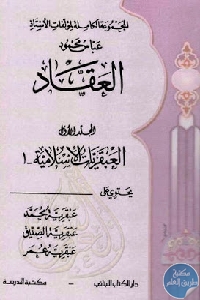 المجموعة الكاملة لمؤلفات الأستاذ
عباس محمود
العقاد
المجلد الأول
العبقريات الإسلامية - ١
يحتوي على
عبقرية محمد
عبقرية الصديق
عبقرية عمر
دار الكتاب اللبناني
مكتبة المدرسة
مكتبة
طريق العلم